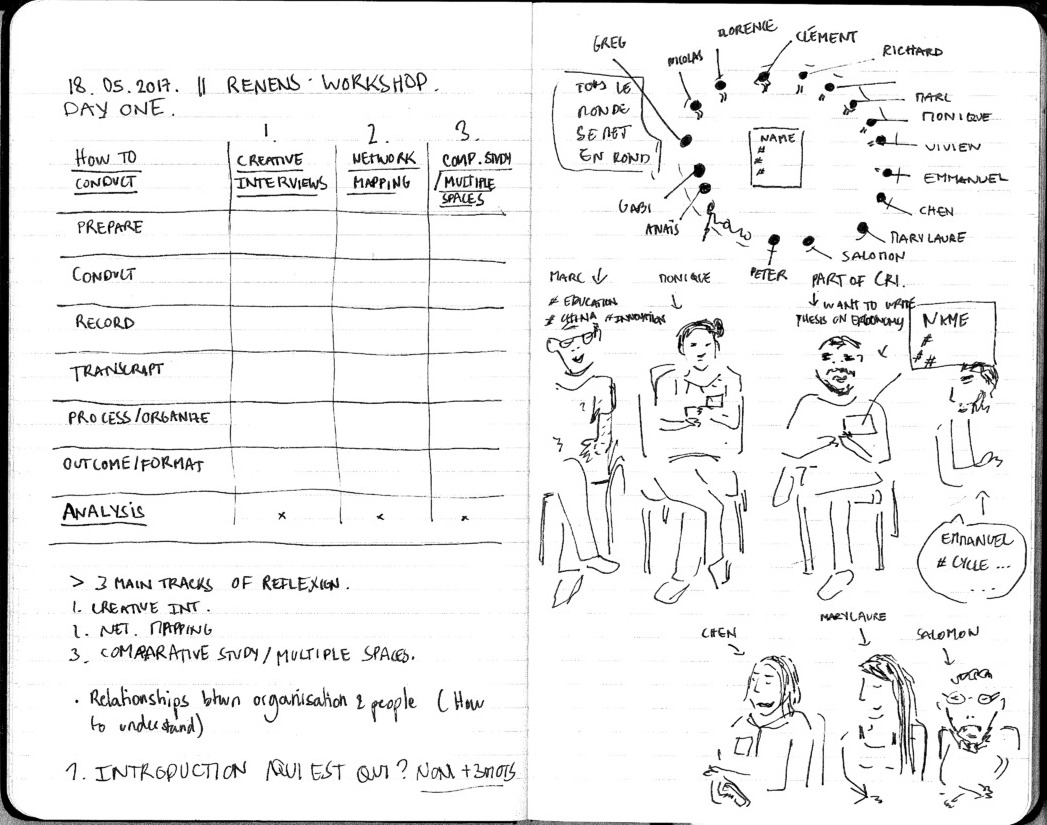 18.05.2017. || RENENS · WORKSHOP.
DAY ONE.
1. 2. 3.
HOW TO CONDUCT
CREATIVE INTERVIEWS
NETWORK MAPPING
COMP. STUDY / MULTIPLE SPACES
PREPARE
CONDUCT
RECORD
TRANSCRIPT
PROCESS/ORGANIZE
OUTCOME/FORMAT
ANALYSIS x x x
> 3 MAIN TRACKS OF REFLEXION.
1. CREATIVE INT.
2. NET. MAPPING
3. COMPARATIVE STUDY / MULTIPLE SPACES.
· Relationships btwn organisation & people (How
to understand)
1. INTRODUCTION QUI EST QUI? NOM + 3 MOTS
GREG
NICOLAS
FLORENCE
CLÉMENT
RICHARD
MARC
MONIQUE
VIVIEN
EMMANUEL
CHEN
MARYLAURE
SALOMON
PETER
ANAÏS
GABI
TOUS LE
MONDE
SE MET
EN ROND
NAME
#
#
#
MARC
# EDUCATION
# CHINA # INNOVATION
MONIQUE
PART OF CRI.
WANT TO WRITE
THESIS ON
NAME
#
# #
EMMANUEL
# CYCLE ...
...
CHEN
MARYLAURE
SALOMON